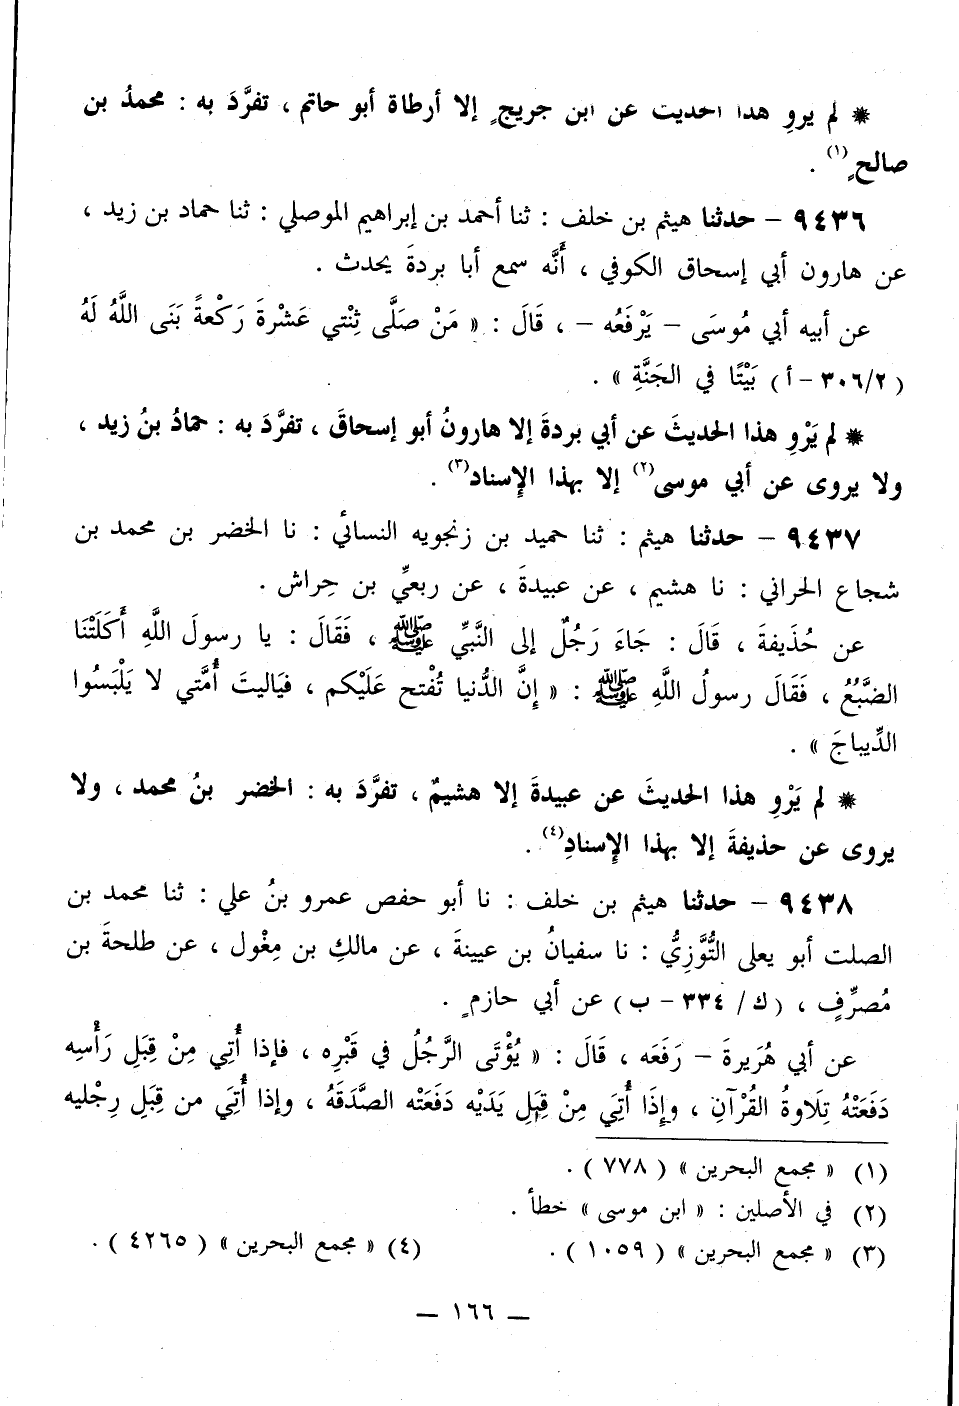 * لم يروِ هذا الحديث عن ابن جريجٍ إلا أرطاة أبو حاتم ، تفرَّدَ به : محمدُ بن
صالحٍ(١) .
٩٤٣٦ – حدثنا هيثم بن خلف : ثنا أحمد بن إبراهيم الموصلي : ثنا حماد بن زيد ،
عن هارون أبي إسحاق الكوفي ، أنَّه سمع أبا بردةَ يحدث .
عن أبيه أبي مُوسَى – يَرْفَعُه – ، قَالَ : « مَنْ صَلَّى ثِنْتي عَشْرةَ رَكْعةً بَنَى اللَّهُ لَهُ
(٣٠٦/٢ – أ) بَيْتًا في الجَنَّةِ » .
* لم يَرْوِ هذا الحديثَ عن أبي بردةَ إلا هارونُ أبو إسحاقَ ، تفرَّدَ به : حمادُ بنُ زيد ،
ولا يروى عن أبي موسى(٢) إلا بهذا الإسناد(٣) .
٩٤٣٧ – حدثنا هيثم : ثنا حميد بن زنجويه النسائي : نا الخضر بن محمد بن
شجاع الحراني : نا هشيم ، عن عبيدةَ ، عن ربعيِّ بن حِراش .
عن حُذَيفةَ ، قَالَ : جَاءَ رَجُلٌ إلى النَّبيِّ ﷺ ، فَقَالَ : يا رسولَ اللَّهِ أَكَلَتْنَا
الضَّبُعُ ، فَقَالَ رسولُ اللَّهِ ﷺ : « إِنَّ الدُّنيا تُفْتح عَلَيْكم ، فيَاليتَ أُمَّتي لا يَلْبَسُوا
الدِّيباجَ » .
* لم يَرْوِ هذا الحديثَ عن عبيدةَ إلا هشيمٌ ، تفرَّدَ به : الخضر بنُ محمد ، ولا
يروى عن حذيفةَ إلا بهذا الإسنادِ(٤) .
٩٤٣٨ – حدثنا هيثم بن خلف : نا أبو حفص عمرو بنُ علي : ثنا محمد بن
الصلت أبو يعلى التُّوَّزِيُّ : نا سفيانُ بن عيينةَ ، عن مالكِ بن مِغْول ، عن طلحةَ بن
مُصرِّفٍ ، (ك/ ٣٣٤ – ب) عن أبي حازمٍ .
عن أبي هُرَيرةَ – رَفَعَه ، قَالَ : « يُؤْتَى الرَّجُلُ في قَبْرِه ، فإذا أُتِي مِنْ قِبَلِ رَأْسِه
دَفَعَتْهُ تِلَاوةُ القُرْآنِ ، وإِذَا أُتِيَ مِنْ قِبَلِ يَدَيْه دَفَعَتْه الصَّدَقَةُ ، وإذا أُتِيَ من قِبَلِ رِجْليه
(١) « مجمع البحرين » (٧٧٨) .
(٢) في الأصلين : « ابن موسى » خطأ .
(٣) « مجمع البحرين » (١٠٥٩) . (٤) « مجمع البحرين » (٤٢٦٥) .
— ١٦٦ —